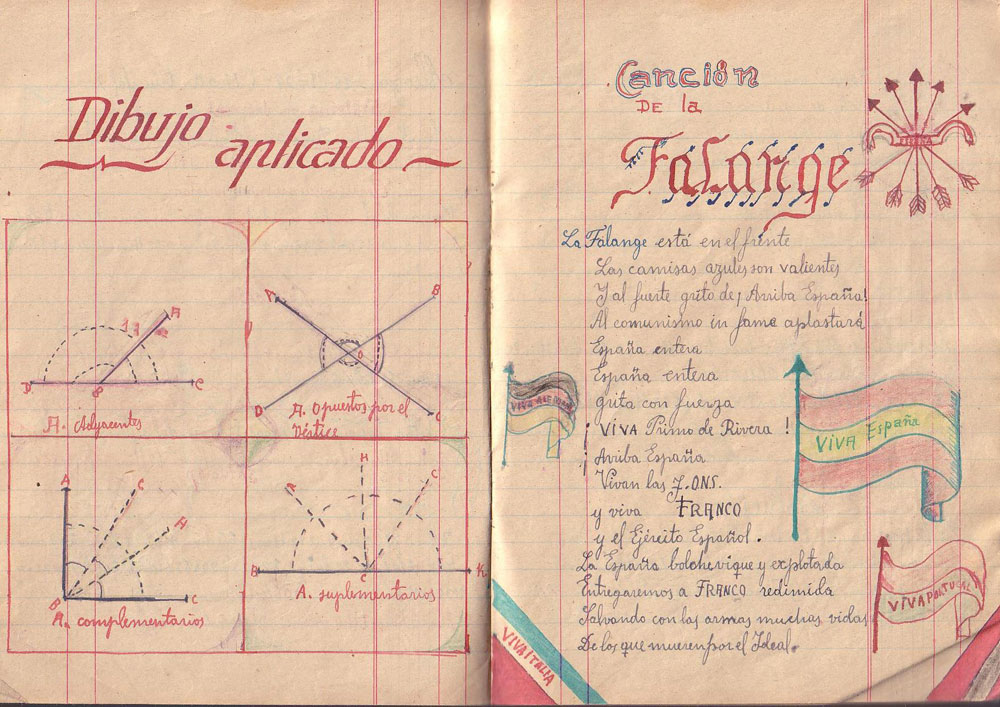 Dibujo
aplicado
A
D B C
A. Adyacentes
A B
O
D C
A. Opuestos por el
Vértice
A C H
B C
A. complementarios
A H C
B C K
A. suplementarios
Canción
DE la
Falange
La Falange está en el frente
Las camisas azules son valientes
Y al fuerte grito de ¡Arriba España!
Al comunismo in fame aplastará
España entera
España entera
grita con fuerza
¡ VIVA Primo de Rivera !
¡ Arriba España
Vivan las J.ONS.
y viva FRANCO
y el Ejército Español.
La España bolchevique y explotada
Entregaremos a FRANCO redimida
Salvando con las armas muchas vidas
De los que mueren por el Ideal.
VIVA
VIVA España
VIVA PORTUGAL
VIVA ITALIA